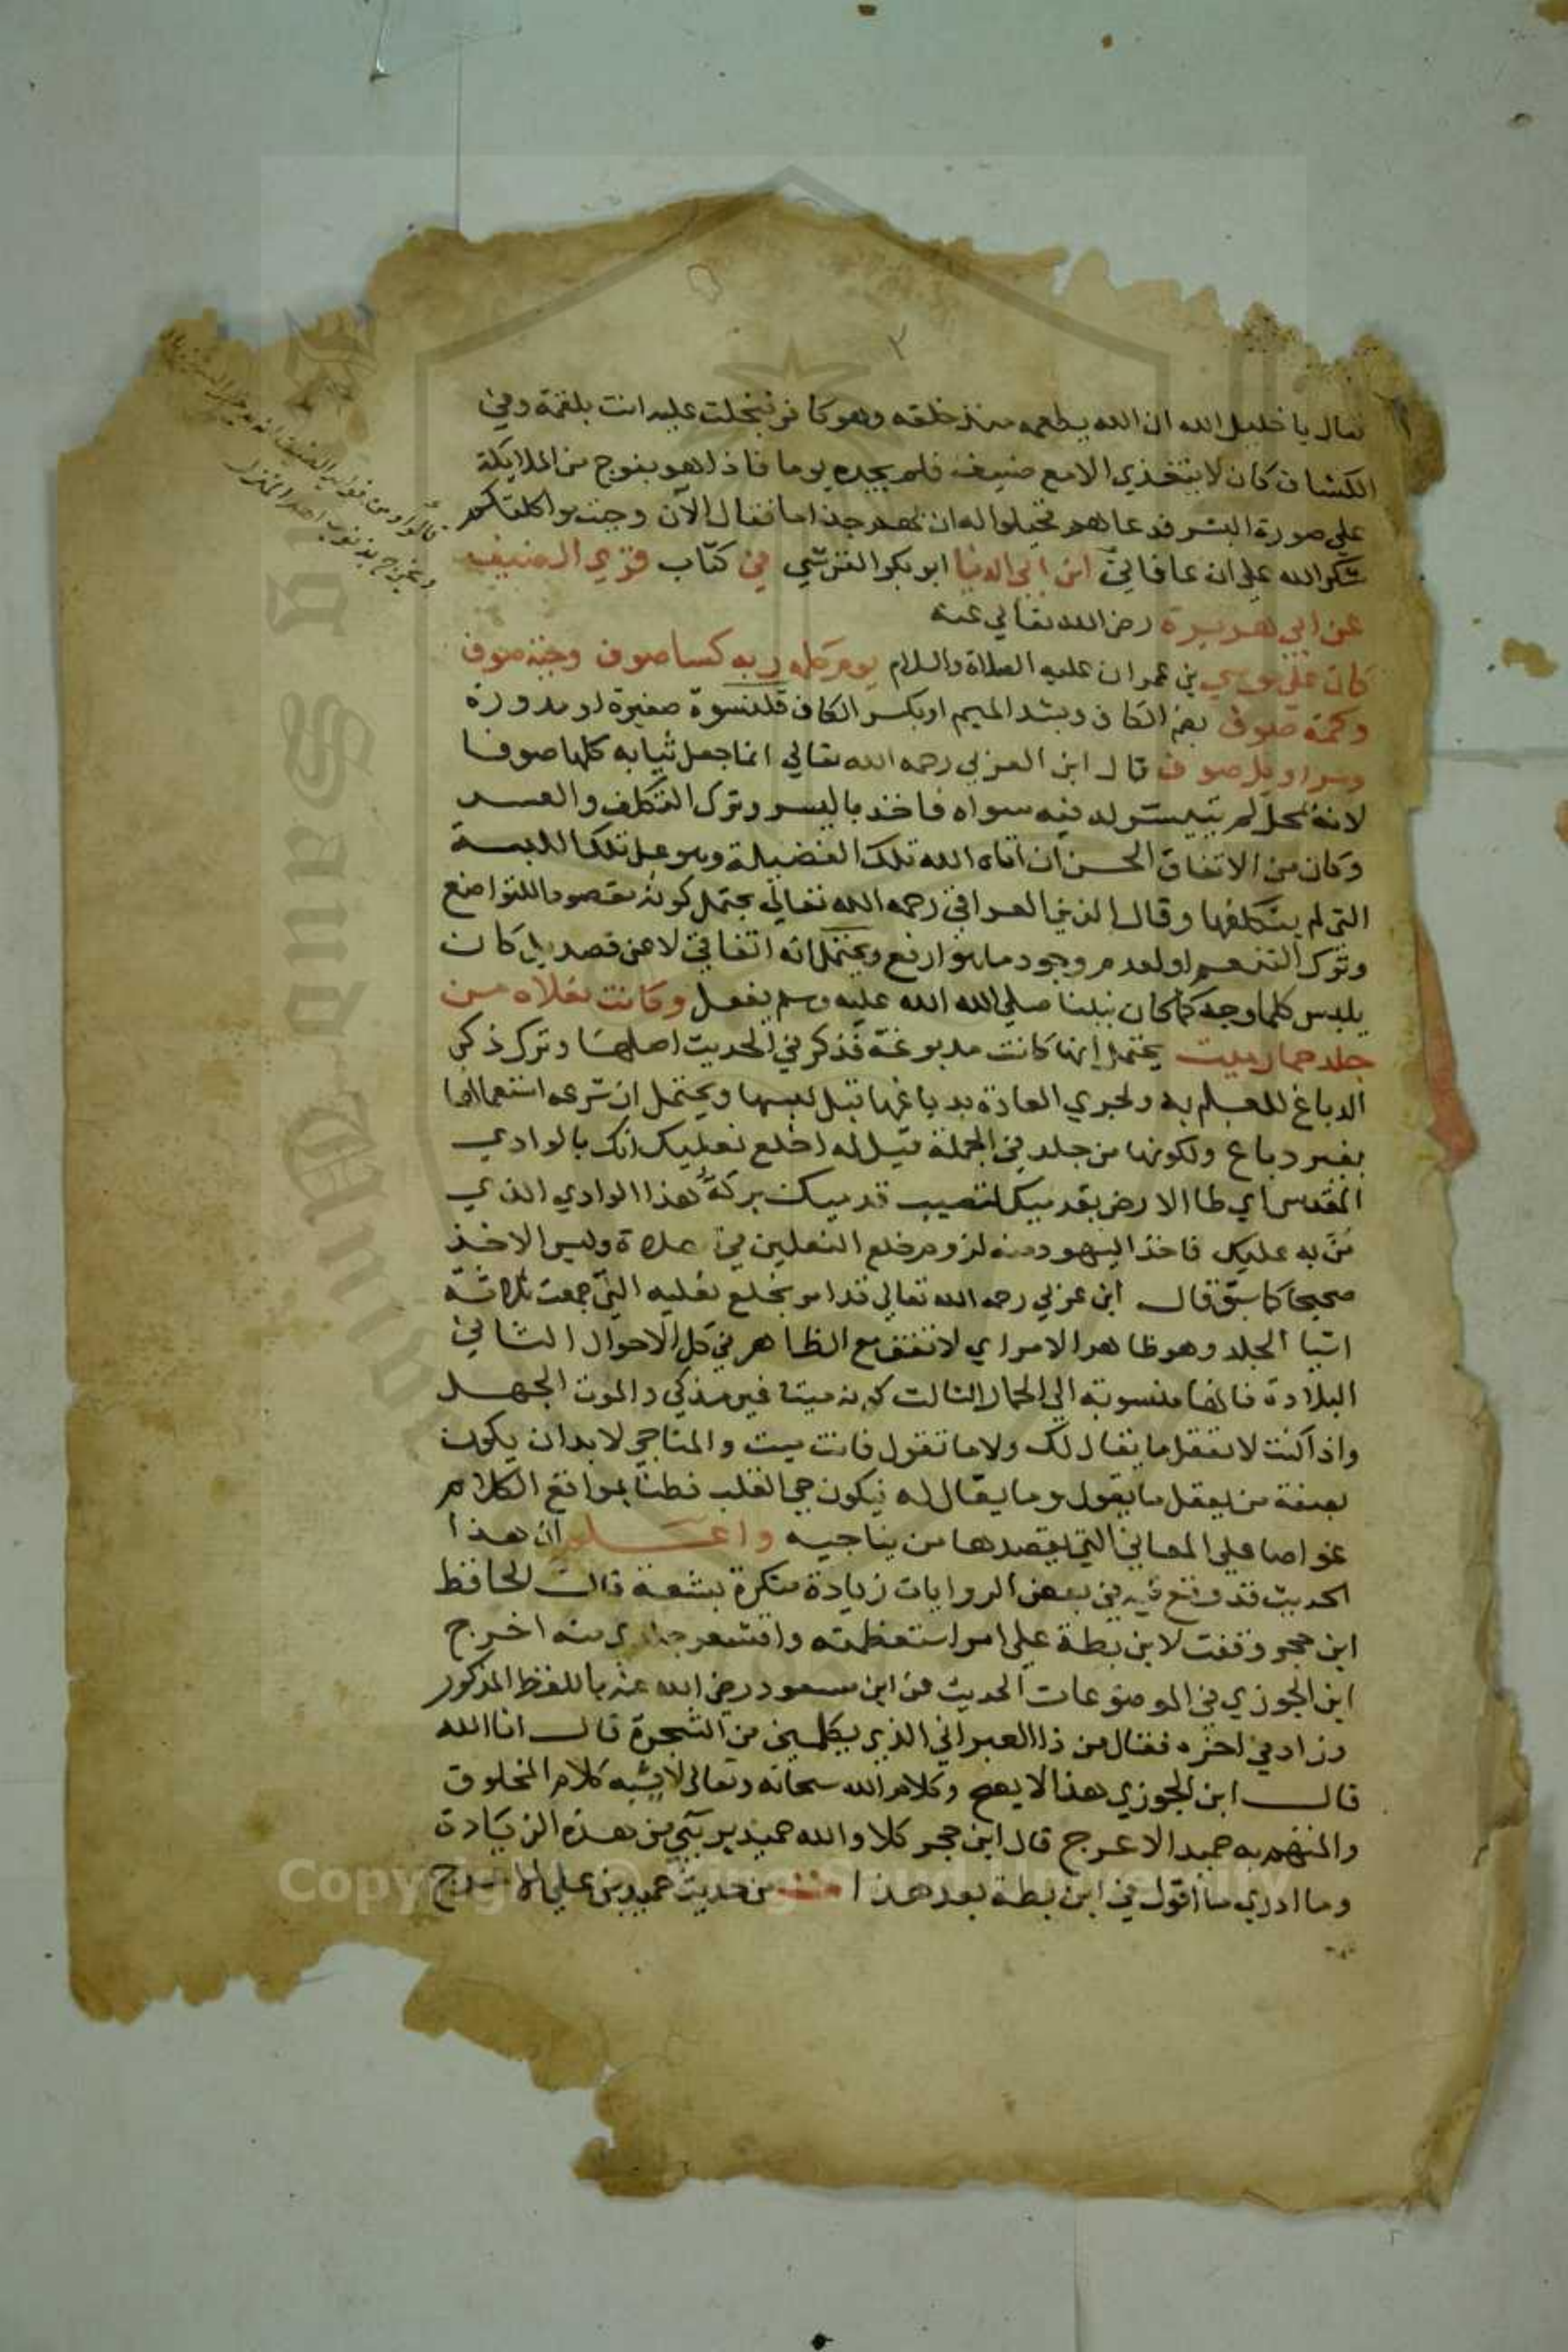 ٢
فقال يا خليل الله ان الله يطعمه منذ خلقه وهو كافر فبخلت عليه انت بلقمة وفي
الكشاف كان لا يتغذي الا مع ضيف فلم يجده يوما فاذا هو بفوج من الملايكة
علي صورة البشر فدعاهم فخيلوا له ان بهم جذاما فقال الآن وجبت مواكلتكم
شكرا لله علي ان عافاني ابن ابي الدنيا ابو بكر القرشي في كتاب قري الضيف
عن ابي هريرة رضي الله تعالي عنه
كان علي موسي بن عمران عليه الصلاة والسلام يوم كلمه ربه كسا صوف وجبة صوف
وكمة صوف بضم الكاف وبشد الميم او بكسر الكاف قلنسوة صغيرة او مدورة
وسراويل صوف قال ابن العربي رحمه الله تعالي انما جعل ثيابه كلها صوفا
لانه بمحل لم يتيسر له فيه سواه فاخذ باليسر وترك التكلف والعسر
وكان من الاتفاق الحسن ان اتاه الله تلك الفضيلة وهو علي تلك اللبسة
التي لم يتكلفها وقال الزين العراقي رحمه الله تعالي يحتمل كونه مقصودا للتواضع
وترك التنعم او لعدم وجود ما هو ارفع ويحتمل انه اتفاقي لا عن قصد بل كان
يلبس كلما وجد كما كان نبينا صلي الله عليه وسلم يفعل وكانت نعلاه من
جلد حمار ميت يحتمل انها كانت مدبوغة فذكر في الحديث اصلها وترك ذكر
الدباغ للعلم به ولجري العادة بدباغها قبل لبسها ويحتمل ان شرعه استعمالها
بغير دباغ ولكونها من جلد في الجملة قيل له اخلع نعليك انك بالوادي
المقدس اي طا الارض بقدميك لتصيب قدميك بركة هذا الوادي الذي
مُنّ به عليك فاخذ اليهود منه لزوم خلع النعلين في صلاة وليس الاخذ
صحيحا كما سبق قال ابن عربي رحمه الله تعالي قد امر بخلع نعليه التي جمعت ثلاثة
اشيا الجلد وهو ظاهر الامر اي لا تقف مع الظاهر في كل الاحوال الثاني
البلادة فانها منسوبة الي الحمار الثالث كونه ميتا غير مذكي والموت الجهل
واذا كنت لا تعقل ما يقال لك ولا ما تقول فانت ميت والمناجي لا بد ان يكون
بصفة من يعقل ما يقول وما يقال له فيكون حي القلب فطنا بمواقع الكلام
غواصا علي المعاني التي يقصدها من يناجيه واعلم ان هذا
الحديث قد وقع فيه في بعض الروايات زيادة منكرة بشعة قال الحافظ
ابن حجر وقفت لابن بطة علي امر استعظمته واقشعر جلدي منه اخرج
ابن الجوزي في الموضوعات الحديث عن ابن مسعود رضي الله عنه باللفظ المذكور
وزاد في اخره فقال من ذا العبراني الذي يكلمني من الشجرة قال انا الله
قال ابن الجوزي هذا لا يصح وكلام الله سبحانه وتعالي لا يشبه كلام المخلوق
والمتهم به حميد الاعرج قال ابن حجر كلا والله حميد بريي من هذه الزيادة
وما ادري ما اقول في ابن بطة بعد هذا من حديث حميد بن علي الاعرج
قالوا ومن فوايد الضيف انه
ويخرج بذنوب اهل المنزل
Copyright © King Saud University
King Saud University